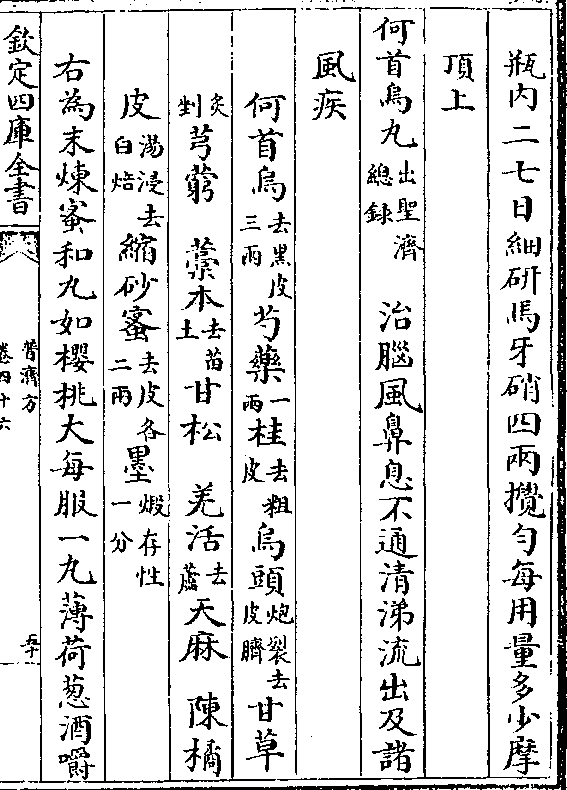 瓶内二七日細研馬牙硝四兩攪勻每用量多少摩
頂上
何首烏丸出聖濟總録 治腦風鼻息不通清涕流出及諸
風疾
何首烏去黑皮三兩 芍藥一兩 桂去粗皮 烏頭炮裂去皮臍 甘草
炙剉 芎藭 藁本去苗土 甘松 羌活去蘆 天麻 陳橘
皮湯浸去白焙 縮砂蜜去皮各二兩 墨煅存性一分
右為末煉蜜和丸如櫻桃大每服一丸薄荷葱酒嚼
欽定四庫全書
普濟方
卷四十六